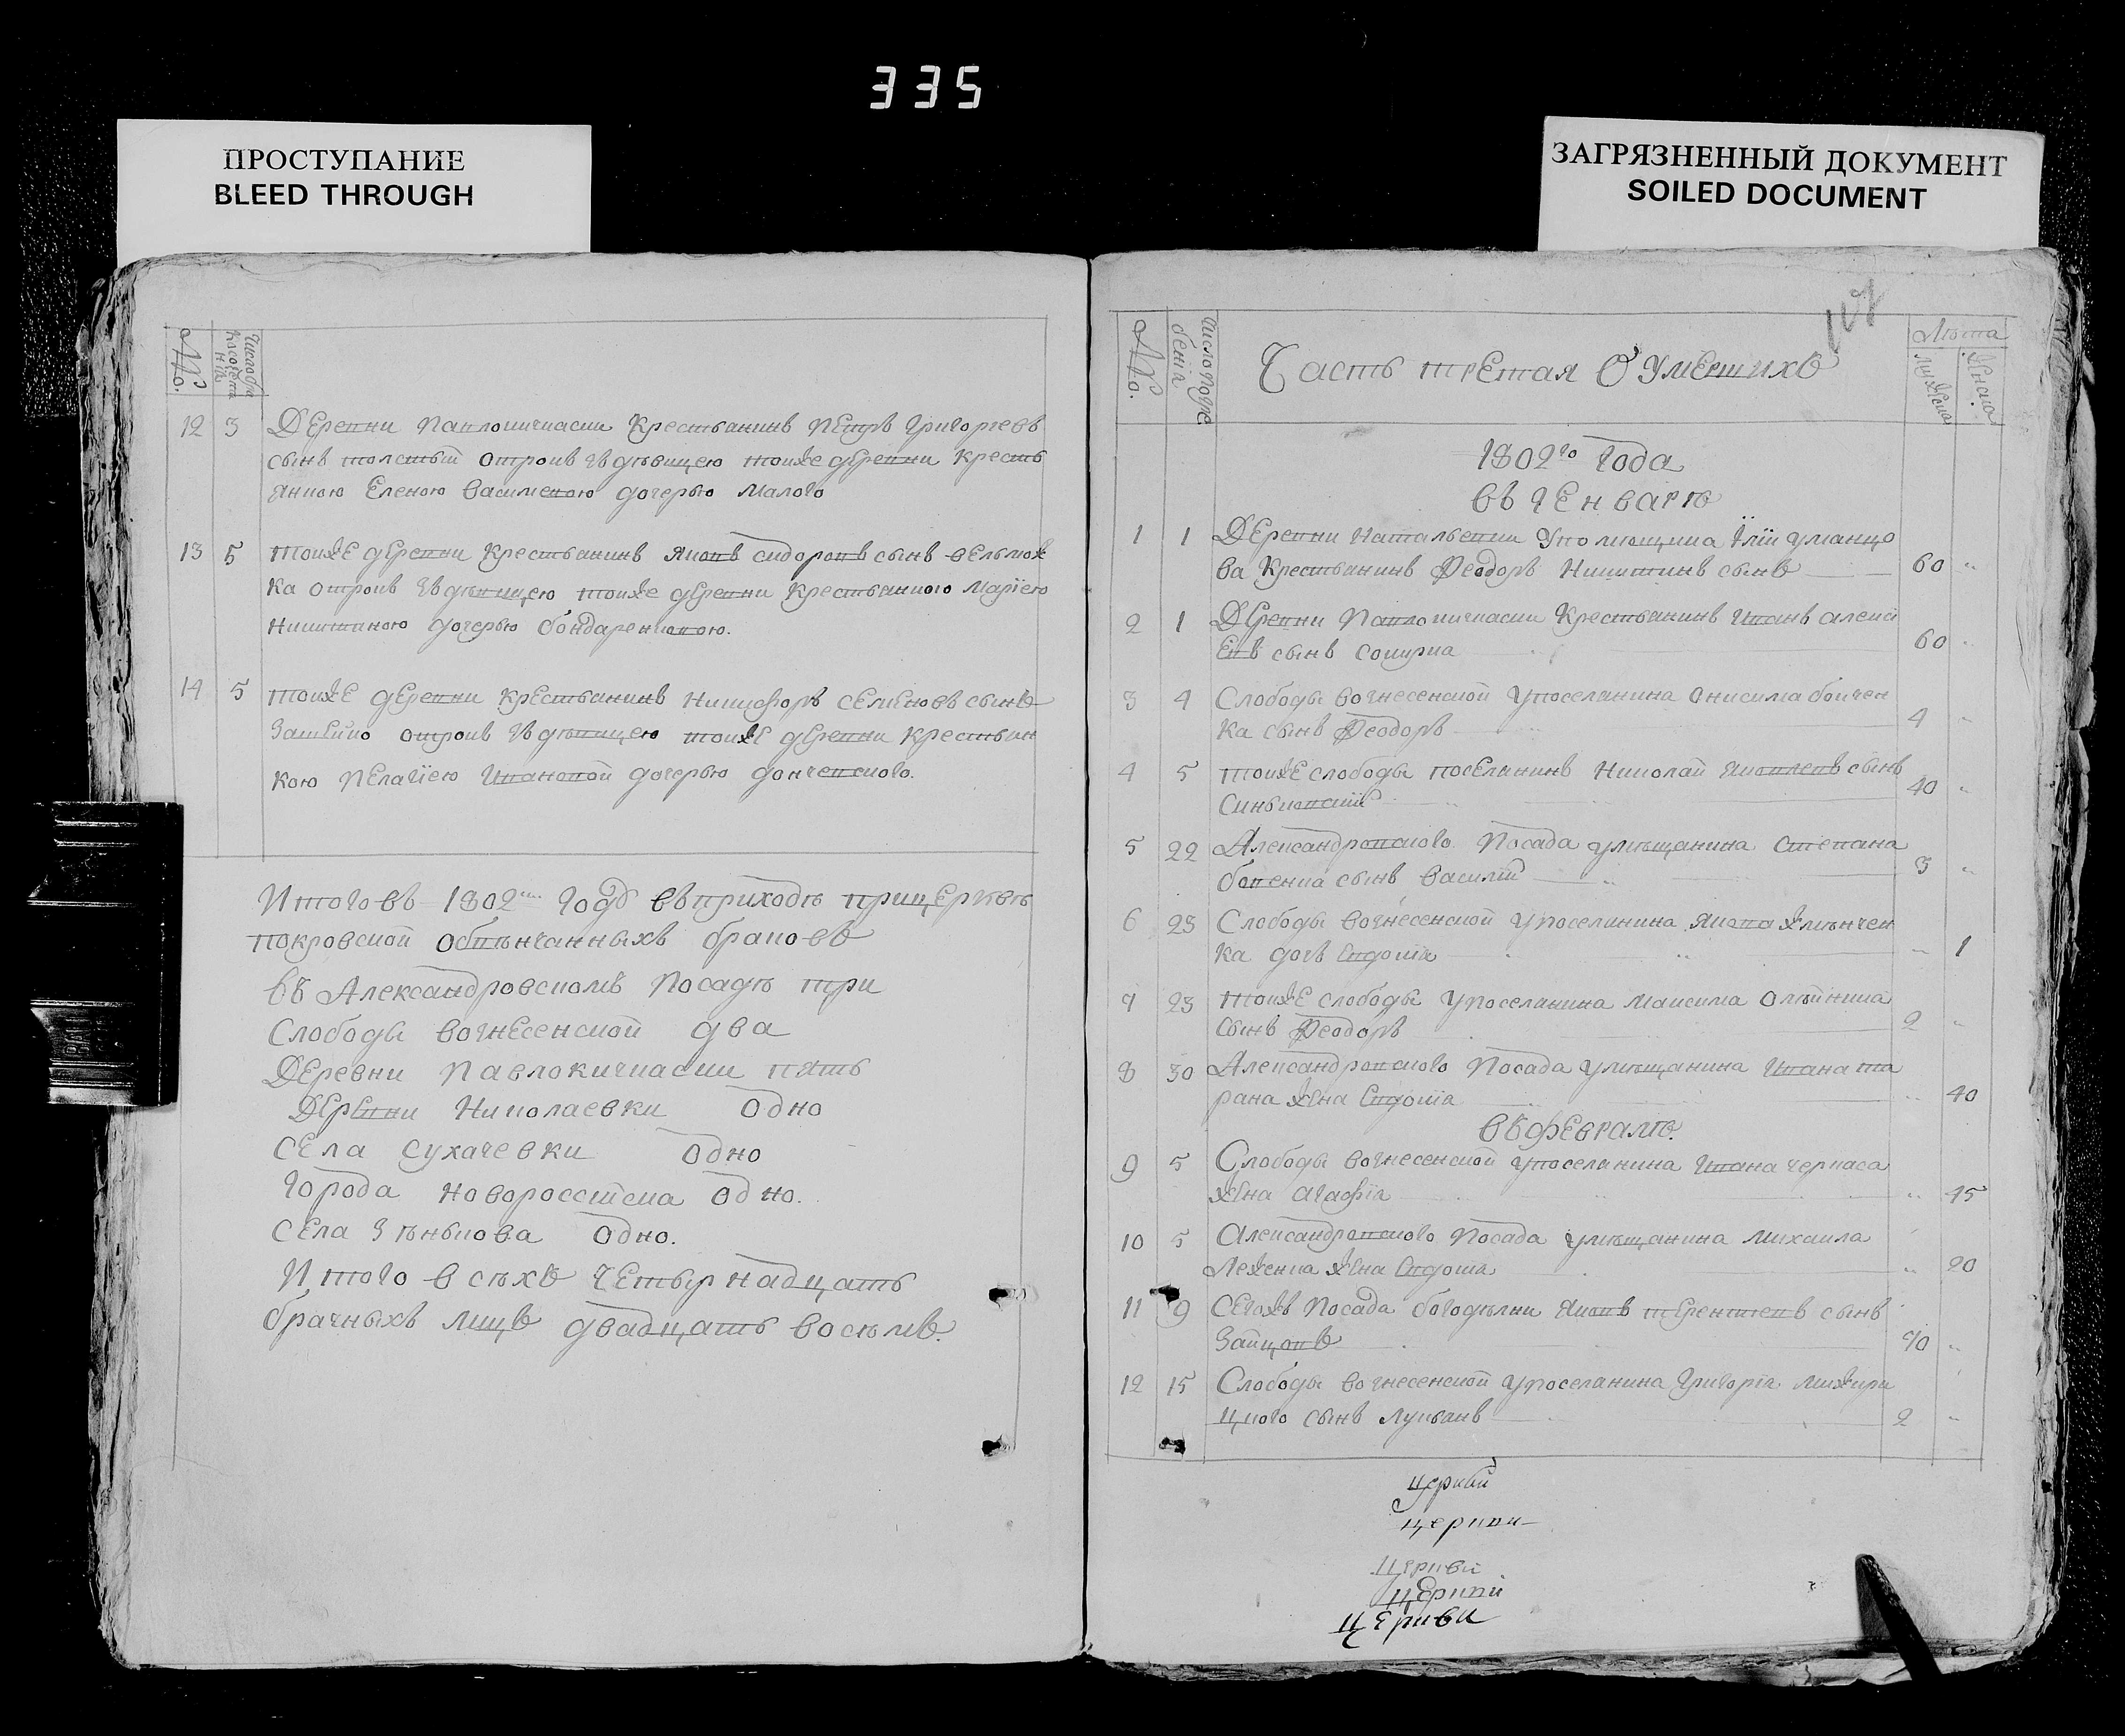 335
ПРОСТУПАНИЕ
BLEED THROUGH
ЗАГРЯЗНЕННЫЙ ДОКУМЕНТ
SOILED DOCUMENT
№.
12 3 Деревни Павлокичкаски Крестьянинъ Петръ Григорьевъ
сынъ толстый отрокъ здѣвицею тоиже деревни Кресть
янкою Еленою Василевою дочерью Малого
13 5 тоиже деревни Крестьянинъ Яковъ сидоровъ сынъ вельмож
ка отрокъ здѣвицею тоиже деревни Крестьянкою Маріею
Никитиною дочерью бондаренковою.
14 5 тоиже деревни Крестьянинъ Никифоръ Семеновъ сынъ
отрокъ здѣвицею тоиже деревни Крестьян
кою Пелагіею Ивановой дочерью донченского.
Итого въ 1802мъ годѣ въ приходѣ при церквѣ
покровской обвѣнчанныхъ браковъ
въ Александровскомъ Посадѣ три
Слободы вознесенской два
Деревни Павлокичкаски пять
Деревни Николаевки одно
Села Сухачевки одно
города новоросстиска одно.
Села Зѣнькова одно.
Итого всѣхъ четырнадцать
брачныхъ лицъ двадцать восѣмъ.
№. Лѣта
Часть третая О умершихъ
1802го года
въ генварѣ
1 1 Деревни Натальевки Уполющика Іліи уманцо
ва Крестьянинъ Феодоръ Никитинъ сынъ 60 "
2 1 Деревни Павлокичкаски Крестьянинъ Иванъ алекси
евъ сынъ Сокирка 60 "
3 4 Слободы вознесенской Упоселанина Онисима бойчен
ка сынъ Феодоръ 4 "
4 5 тоиже слободы поселанинъ Николай Яковлевъ сынъ
Синьковскій 40 "
5 22 Александровского Посада умѣщанина Степана
бовенка сынъ Василій 3 "
6 23 Слободы вознесенской Упоселанина Якова хмѣнчен
ка дочь Евдокіа " 1
7 23 тоиже слободы Упоселанина Максима Олѣйника
сынъ Феодоръ 2 "
8 30 Александровского Посада умѣщанина Ивана та
рана жена Евдокіа " 40
въ февралѣ.
9 5 Слободы вознесенской Упоселанина Ивана черкаса
жена агафіа " 45
10 5 Александровского Посада умѣщанина михаила
Леженка жена Евдокіа " 20
11 9 Сегожъ Посада богодѣлни Яковъ терентіевъ сынъ
Зайцовъ 70 "
12 15 Слободы вознесенской Упоселанина Григоріа мижири
цкого сынъ Лукьанъ 2 "
церкви
церкви
церкви
церкви
церкви